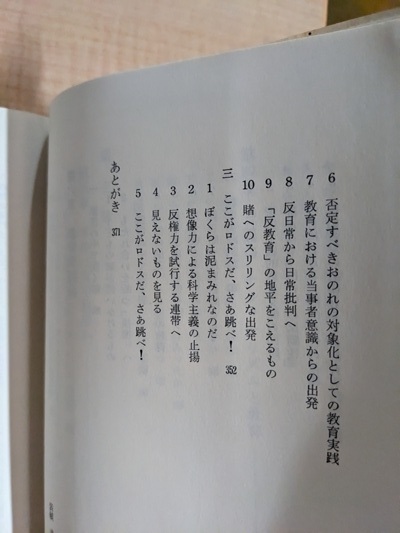 6 否定すべきおのれの対象化としての教育実践
7 教育における当事者意識からの出発
8 反日常から日常批判へ
9 「反教育」の地平をこえるもの
10 賭へのスリリングな出発
三 ここがロドスだ、さあ跳べ! 352
1 ぼくらは泥まみれなのだ
2 想像力による科学主義の止揚
3 反権力を試行する連帯へ
4 見えないものを見る
5 ここがロドスだ、さあ跳べ!
あとがき 371